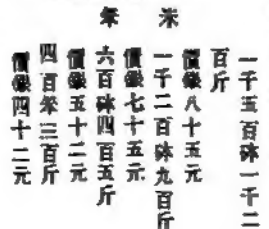 米
一千五百砵一千二
百斤
價銀八十五元
一千二百砵九百斤
價銀七十五元
六百砵四百五斤
價銀五十二元
四百笨三百斤
價銀四十二元